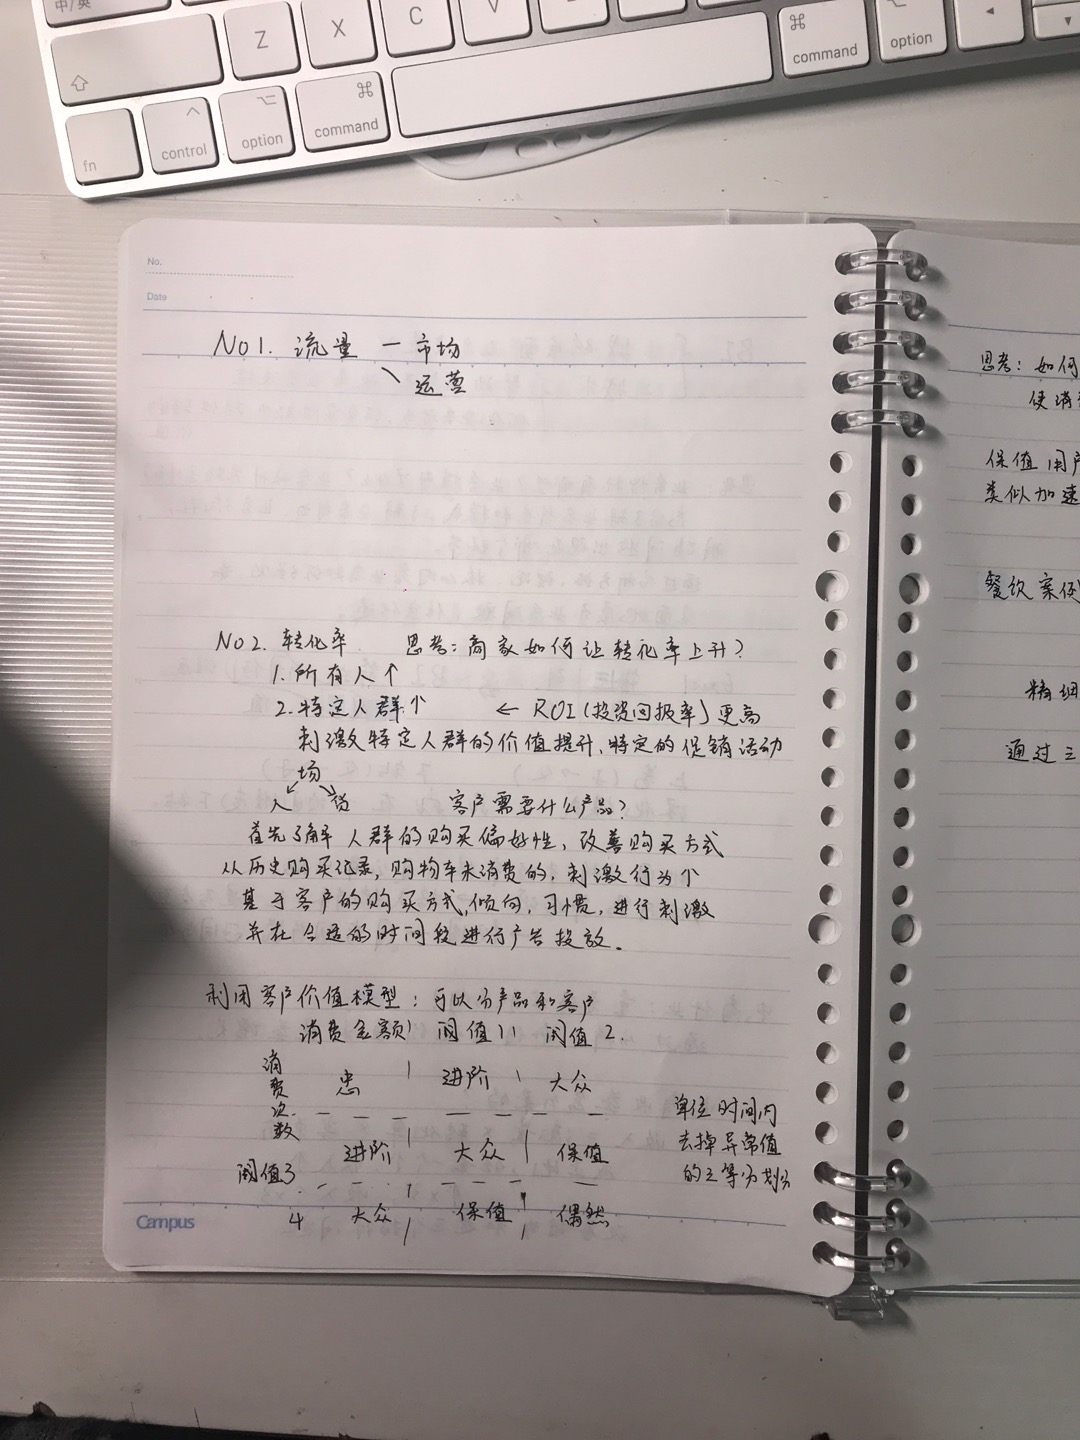 中/英
Z
X
C
V
command
option
fn
control
option
command
No.
Date
No1. 流量 — 市场
运营
No2. 转化率 思考: 商家如何让转化率上升?
1. 所有人个
2. 特定人群个 ← ROI(投资回报率)更高
刺激特定人群的价值提升, 特定的促销活动
场
人 货 客户需要什么产品?
首先了解人群的购买偏好性, 改善购买方式
从历史购买记录, 购物车未消费的, 刺激行为个
基于客户的购买方式, 倾向, 习惯, 进行刺激
并在合适的时间段进行广告投放.
利用客户价值模型: 可以分产品和客户
消费金额 阈值1 阈值2.
消费次数 忠 进阶 大众
进阶 大众 保值
阈值3
4 大众 保值 偶然
单位时间内
去掉异常值
的三等分划分
Campus
思考: 如何
使消
保值用户
类似加速
餐饮案例
精细
通过三